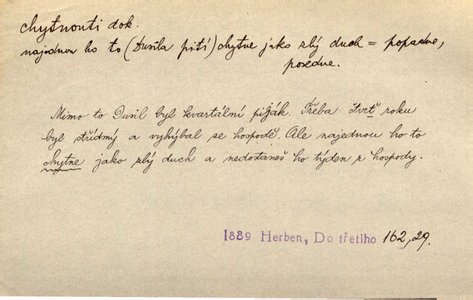 chytnouti dok.
najednou ho to (Dusila pití) chytne jako zlý duch = popadne,
posedne.
Mimo to Dusil byl kvartální piják. Třeba čtvrt roku
byl střídmý a vyhýbal se hospodě. Ale najednou ho to
chytne jako zlý duch a nedostaneš ho týden z hospody.
1889 Herben, Do třetího 162,29.